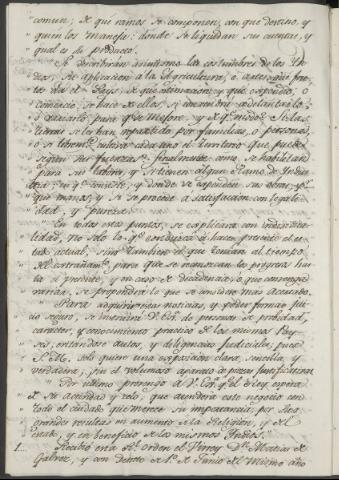 comun, de qué ramos se componen, con que destino, y
quien los maneja: donde se liquidan sus cuentas, y
qual es su producto.
Se describirán asimismo las costumbres de los In-
dios, su aplicacion á la Agricultura, ó Artes: qué fru-
tos da el Pays; de que estimacion; y que expendio, ó
comercio se hace de ellos; si convendrá adelantarlo,
ó variarlo para que mejore, y de que modo: Si las
tierras se les han repartido por familias, ó personas,
ó si libremente cultiva cada uno el territorio que puede
segun sus fuerzas: finalmente como se habilitan
para sus labores, y si tienen algun Ramo de Indus-
tria: en que consiste, y donde se expenden sus obras, por
que manos, y si se procede á satisfaccion con legali-
dad, y pureza.
En todos estos puntos, se explicará con individua-
lidad, no solo lo que conduzca á hacer presente el es-
tado actual, sino tambien el que tenian al tiempo
del extrañamiento para que se conozcan los progresos has-
ta el presente, y en caso de decadencia, ó que convenga
mejorarse, se propondrá lo que se considere mas acertado.
Para adquirir estas noticias, y poder formar jui-
cio seguro, se instruirá V. Exa. de personas de probidad,
caracter, y conocimiento practico de los mismos Pay-
ses, evitandose autos, y diligencias judiciales, pues
S. M. solo quiere una exposicion clara, sencilla, y
verdadera, sin el voluminoso aparato de piezas justificativas.
Por ultimo prevengo á V. Exa. que el Rey espera
de su actividad y celo, que atenderá este negocio con
todo el cuidado que merece su importancia, por las
grandes resultas en aumento de la Religion, y del
Estado, y en beneficio de los mismos Indios.
1. Recibió esta Rl. orden el Virrey Dn. Matias de
Galvez, y con decreto de 1º. de Junio del mismo año